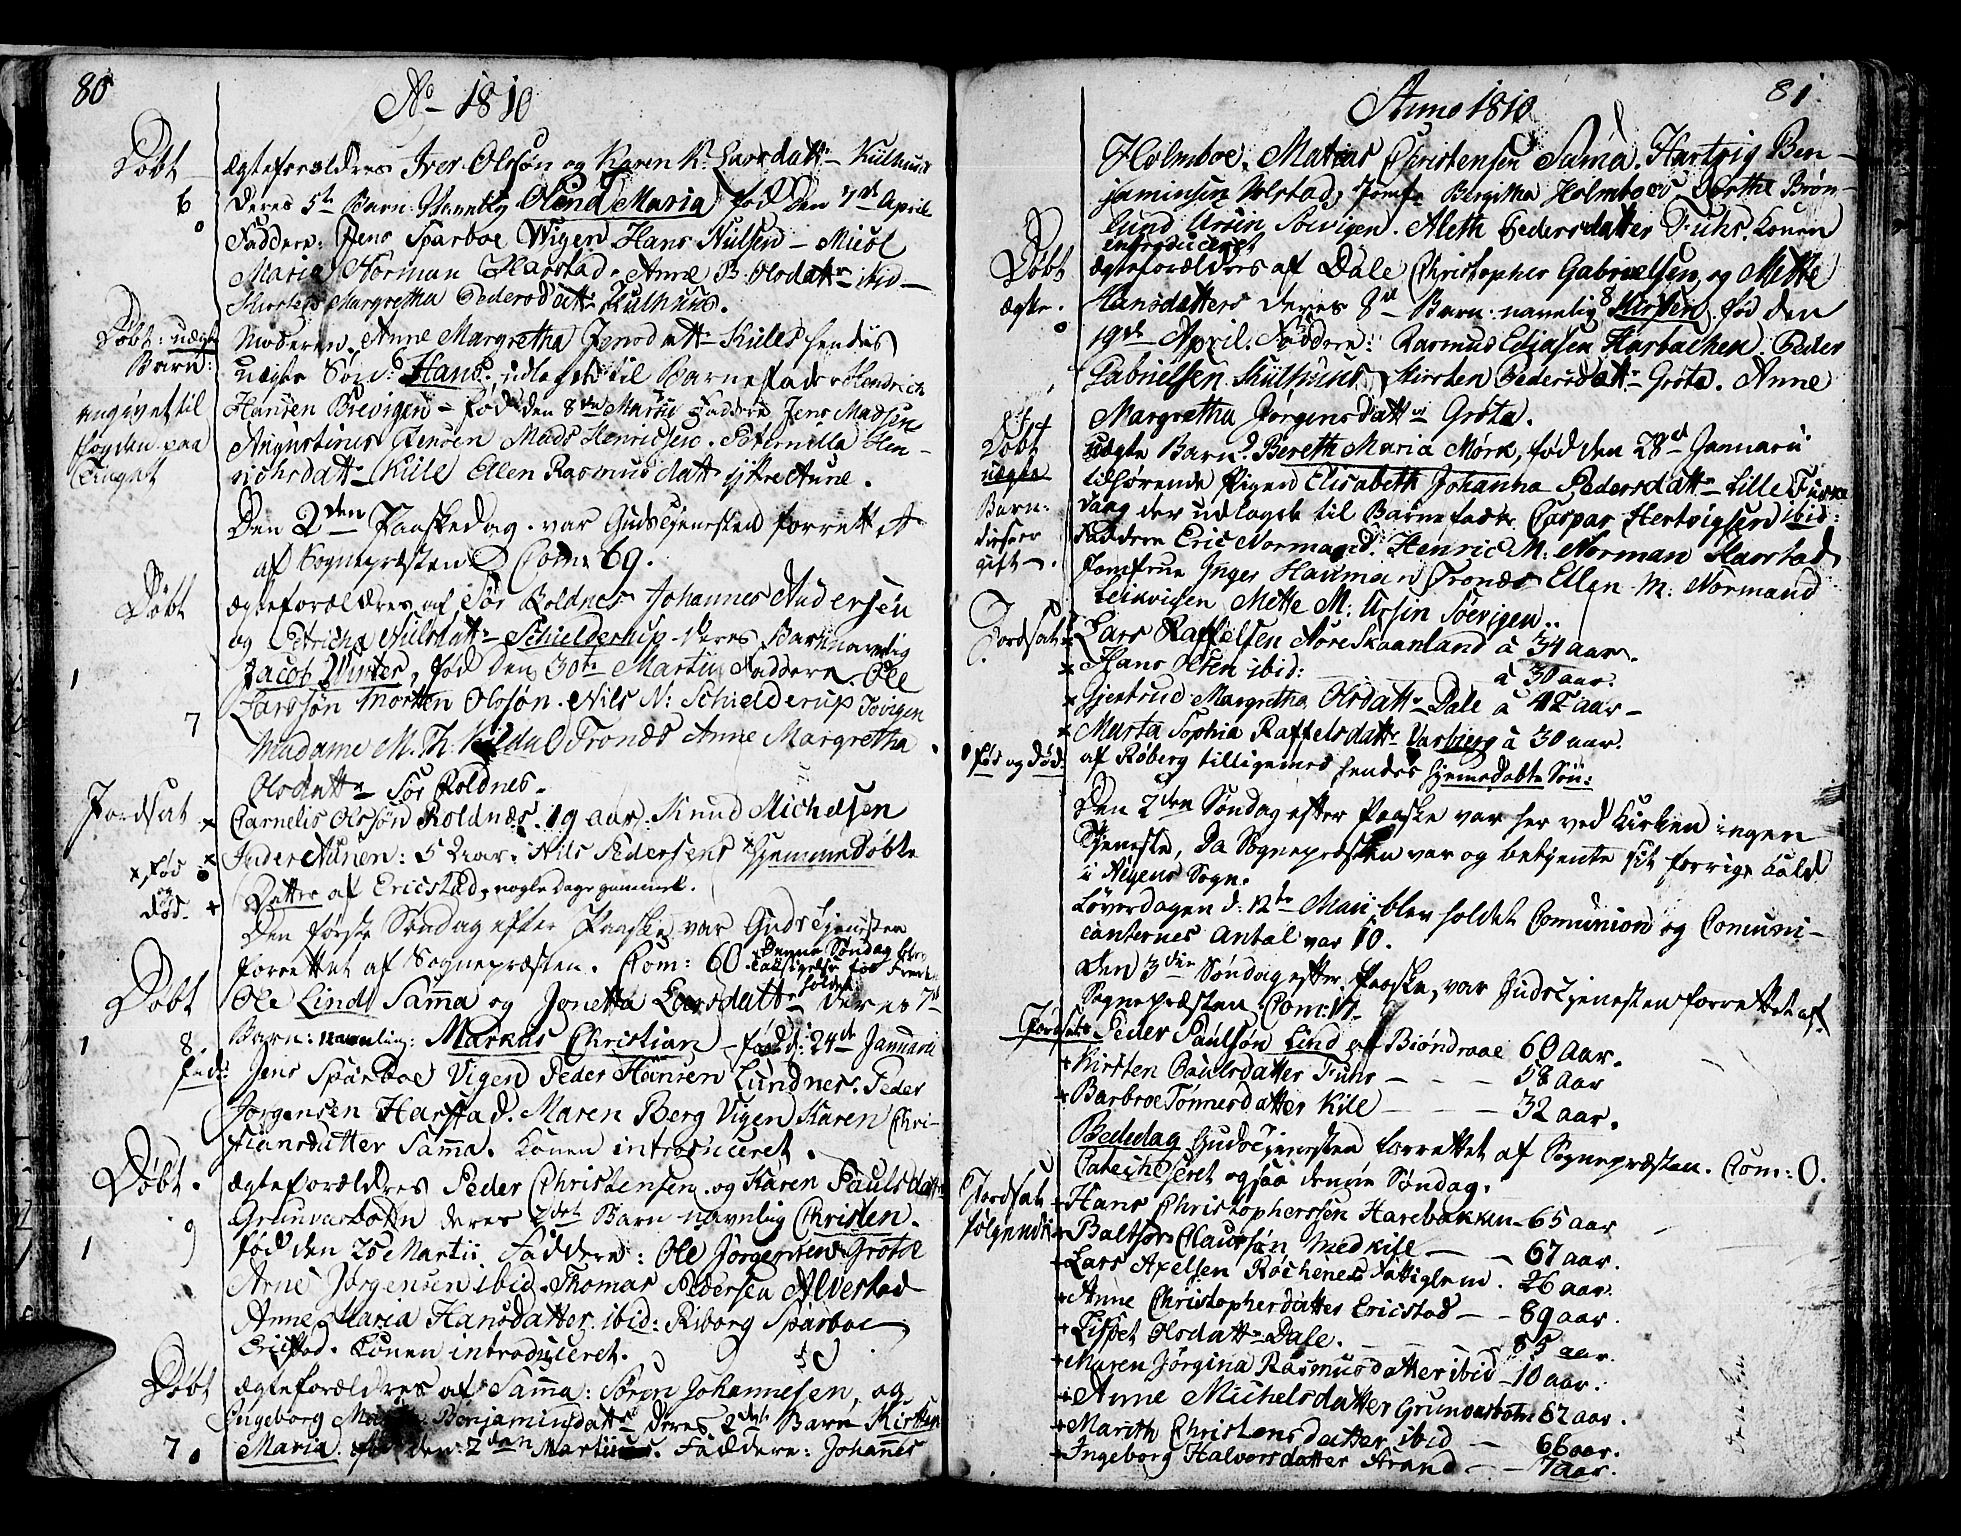 80
Ao 1810
Døbt
6
ægteforældres Iver Olssøn og Karen K. Larsdattr Kulhuus
deres 5te Barn Navnlig Olend Maria fød den 7de April
Faddere: Jens Sparboe Wigen Hans Nilsen
Maria Norman Harstad. Anne B. Olsdattr ibid
Kirsten Margretha Pedersdattr Kulhuus.
Døbt: uægte
Barn:
angivet til
fogden paa
Moderen Anne Margretha Jensdattr Kilen hendes
uægte Søn: Hans, udlagt til Barnefader Hendrich
Hansen Brevigen fød den 8de Martii Faddere Jens Madsen
Augustinus Jensen Mads Henrichsen. Peternilla Hen-
richsdattr Kile Ellen Rasmusdattr Aune.
Den 2den Paaskedag var Gudstjenesten forrettet
af Sognepræsten Com: 69.
Døbt
1
7
ægteforældres af Sør Roldnes Johannes Andersen
og Petricha Nilsdattr Schielderup deres Barn navnlig
Jacob Winter, fød den 30te Martii Faddere. Ole
Larssøn Morten Olssøn. Nils N: Schielderup Sovigen
Madame M. Th: Kildal Tronæs Anne Margretha
Olsdattr Sør Roldnes.
Jordsat
Cornelis Olssøn Roldnæs. 19 aar: Knud Michelsen
Inder Aunen: 5 Uar: Nils Pedersens hjemmedøbte
x, fød
og
død.
Datter af Ericstad, nogle Dage gammel.
Den første Søndag efter Paaske var Gudstjenesten
forrettet af Sognepræsten. Com: 60 Denne Søndag blev
Taksigelse for Freden
holdet
Døbt
1
8.
Ole Lind Sama og Jonetta Larsdattr deres 7de
Barn: navnlig: Markus Christian fød d: 24de Januarii
Jens Sparboe Vigen Peder Hansen Lundnes. Peder
Jørgensen Harstad. Maren Berg Vigen Karen Chri-
stiansdatter Sama. Konen introduceret.
Døbt.
9
1
ægteforældres Peder Christensen og Karen Paulsdattr
Grunvasbotn deres 2det Barn navnlig Christen.
fød den 25e Martii Faddere: Ole Jørgensen Grøtte
Arne Jørgensen ibid. Thomas Pedersen Alvestad
Anne Maria Hansdatter ibid: Riborg Sparboe
Ericstad. Konen introduceret.
Døbt
7
ægteforældres af Sama: Søren Johannesen, og
Ingeborg Benjaminsdattr deres 2det Barn Kirsten
Maria. fød den: 2den Martii. Faddere: Johanes
81
Anno 1810
Holmboe. Matias Christensen Sama. Hartvig Ben-
jaminsen Volstad, Jomfr Bergitha Holmboe Dorthe Brøn-
lund Ursin Soevigen. Aleth Pedersdatter Fuhs. Konen
introduceret
Døbt
ægte.
8
ægteforældres af Dale Christopher Gabrielsen, og Mette
Hansdatters deres 8de Barn: navnlig Kirsten, fød den
19de April. Faddere: Rasmus Eliasen Harbachen Peder
Gabrielsen Kulhuus Kirsten Pedersdattr Grøta. Anne
Margretha Jørgensdattr Grøta.
Døbt
uægte
Barn:
gift
uægte Barn. Bereth Maria Mørk, fød den 28de Januarii
tilhørende Pigen Elisabeth Johanna Pedersdattr Lille Fuske
vaag der udlagde til Barnefader Caspar Hertvigsen ibid:
Faddere Eric Normand. Henric M: Norman Harstad
Jomfrue Inger Hauman Tronæs Ellen M: Normand
Leikvigen Mette M: Ursin Soevigen.
Jordsat
x Lars Raffelsen Nøre Skaanland à 34 aar.
x Hans Olsen ibid: à 30 aar.
x Gjertrud Margretha Olsdattr Dale à 47 aar
x Marta Sophia Raffelsdattr Varbierg à 30 aar.
fød og død:
af Røberg tilligemed hendes hjemedøbte Søn:
Den 2den Søndag efter Paaske var her ved Kirken ingen
Tjeneste, da Sognepræsten var og betjente sit forrige Kald
i Øyens Sogn.
Løverdagen d: 12te Maii blev holdet Comunion og Comuni-
canternes Antal var 10.
Den 3die Søndag efter Paaske, var Gudstjenesten forrettet af
Sognepræsten Com: 17.
Jordsat
Peder Paulsøn Lind af Biøndraae 60 Aar.
Kirsten Paulsdatter Fuhs 58 Aar
Barbroe Tønnesdatter Kile 32 aar.
Bededag Gudstjenesten forrettet af Sognepræsten. Com: 0.
Catechiseret ogsaa denne Søndag.
Jordsat
følgende
Hans Christophersen Harebakken 65 aar
Baltser Claussøn Medkile 67 aar.
Lars Axelsen Røchenes Fattiglem. 26 aar.
Anne Christopherdatter Ericstad 89 aar.
Lisbet Olsdattr Dale. 85 aar.
Maren Jørgina Rasmusdatter ibid 10 aar.
Anne Michelsdatter Grunvasbotn 82 aar.
Marith Christensdatter ibid 66 aar.
Ingeborg Halvorsdatter Strand 7 aar.